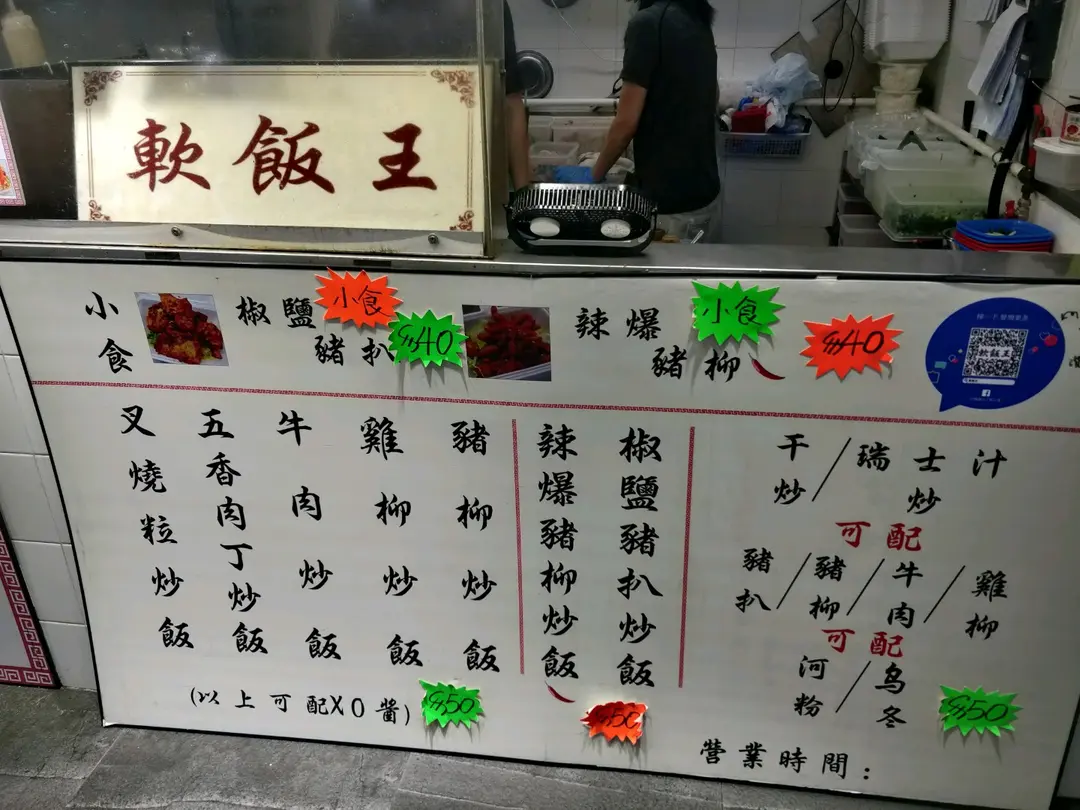 軟飯王
小食
椒鹽
豬扒
小食
$40
辣爆
豬柳
小食
$40
軟飯王
叉燒粒炒飯
五香肉丁炒飯
牛肉炒飯
雞柳炒飯
豬柳炒飯
(以上可配XO醬)
$50
辣爆豬柳炒飯
椒鹽豬扒炒飯
$50
干炒/瑞士汁炒
可配
豬扒/豬柳/牛肉/雞柳
可配
河粉/乌冬
$50
營業時間: